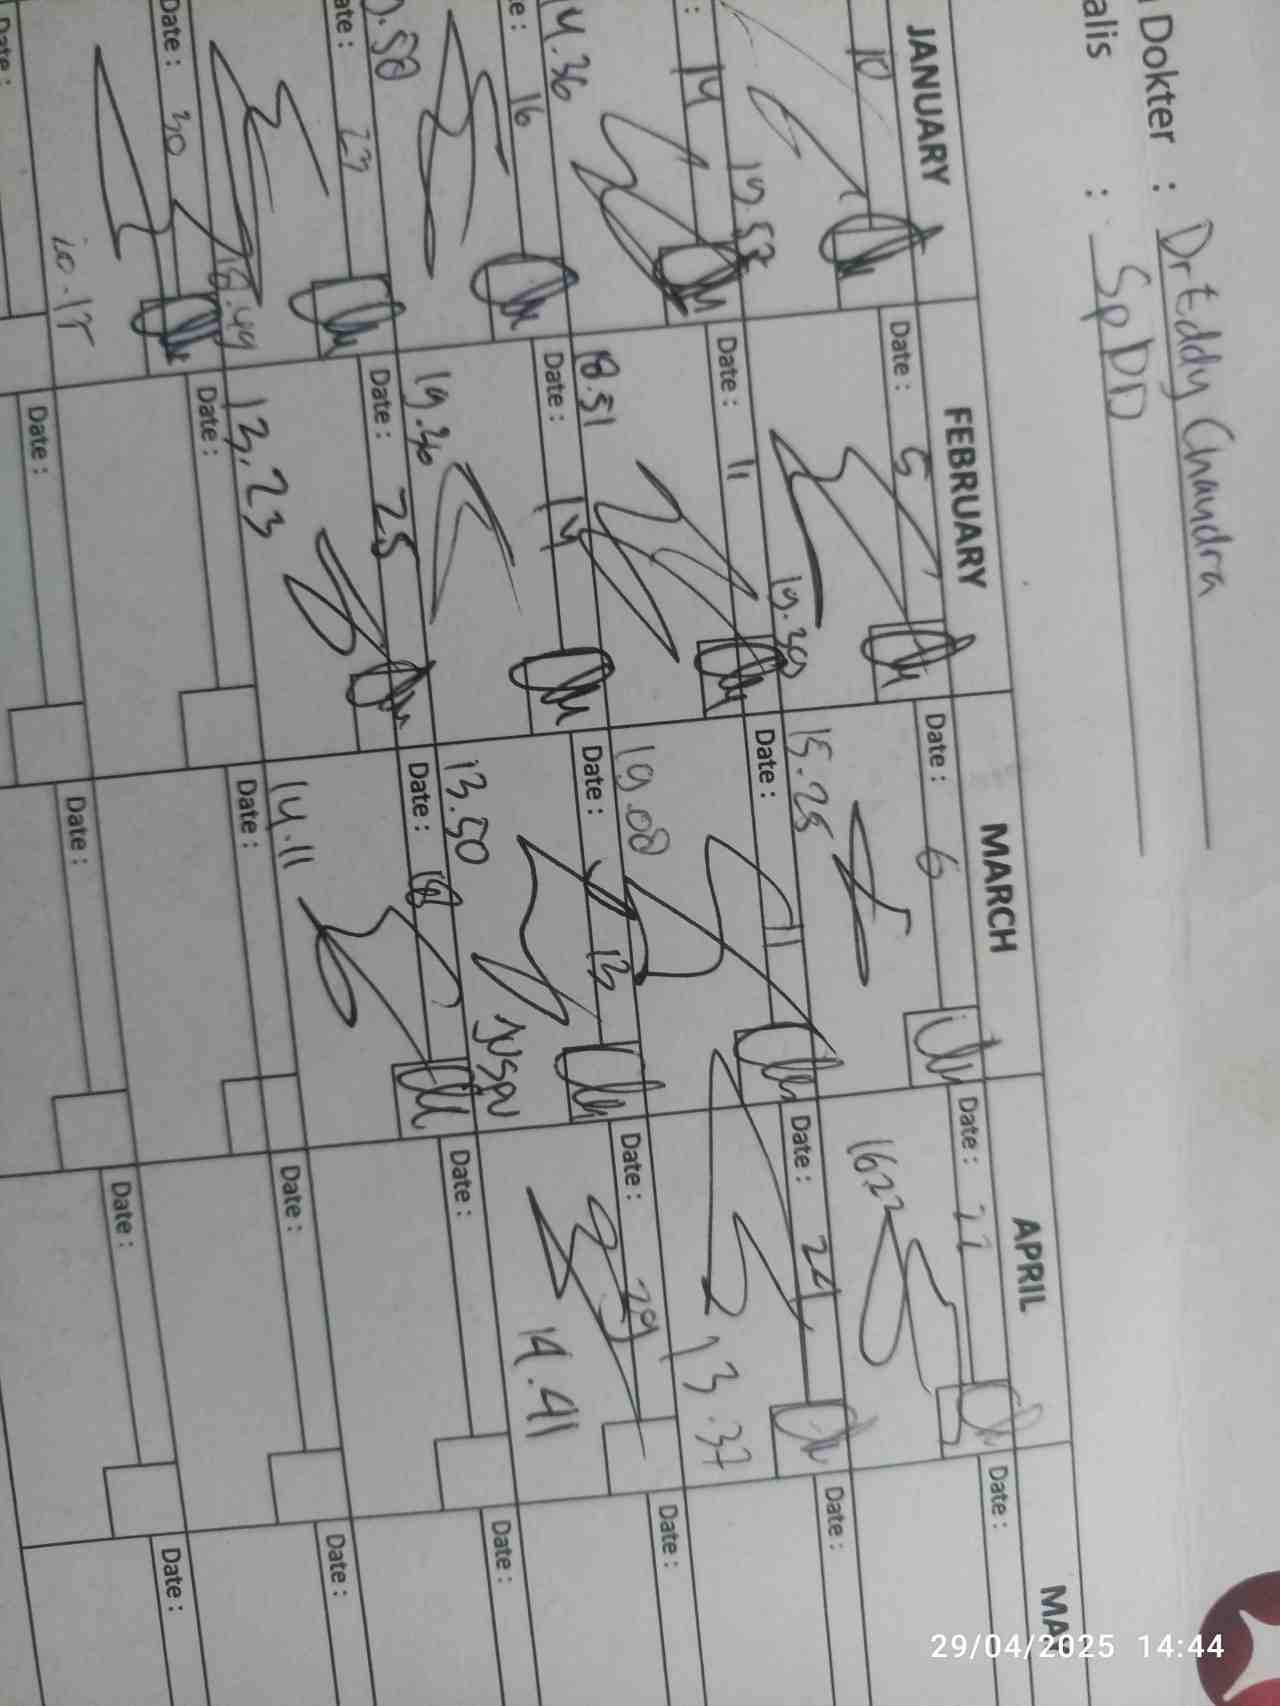 Dokter : Dr Eddy Chandra
alis : SpDD
JANUARY
10
19.57
14
14.36
16
23
18.49
Date : 30
10.17
Date :
FEBRUARY
Date : 5
19.30
Date : 11
18.51
Date : 14
19.36
Date : 25
13.23
Date :
Date :
MARCH
Date : 6
15.25
Date : 11
19.08
Date : 13
13.50
Date : 18
14.11
Date :
Date :
APRIL
Date : 22
16.22
Date : 24
13.37
Date : 29
14.41
Date :
Date :
Date :
MA
Date :
Date :
Date :
Date :
Date :
Date :
29/04/2025 14:44